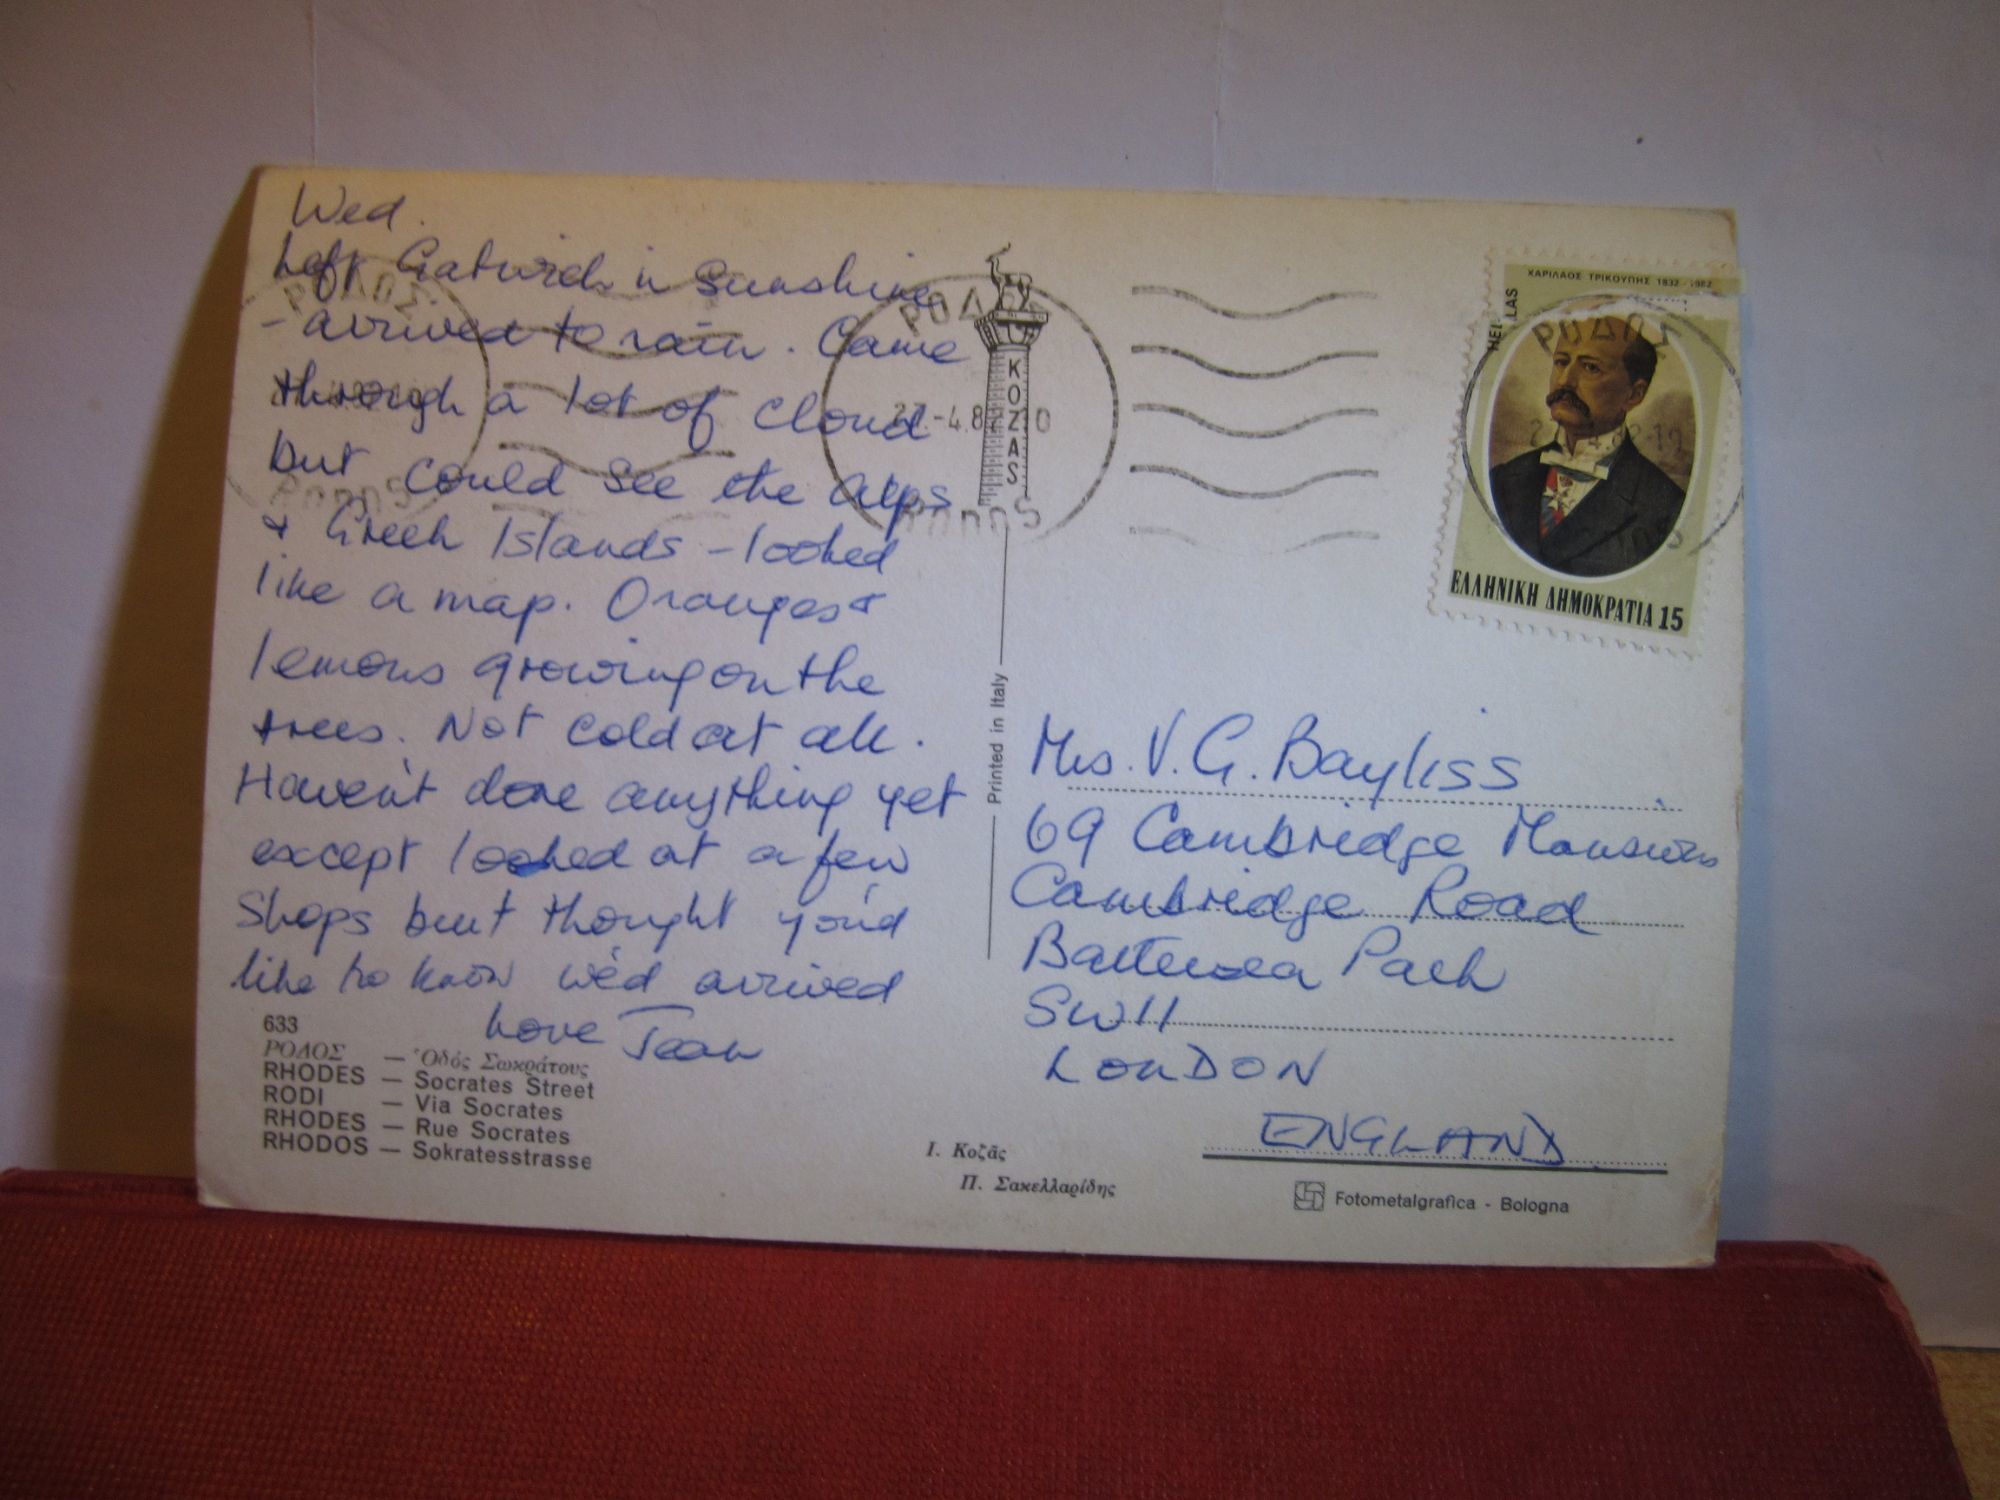 Wed.
Left Gatwick in Sunshine
- arrived to rain. Came
through a lot of cloud
but could see the alps
& Greek Islands - looked
like a map. Oranges &
lemons growing on the
trees. Not cold at all.
Haven't done anything yet
except looked at a few
Shops but thought you'd
like to know we'd arrived
Love Jean
633
ΡΟΔΟΣ — Ὁδός Σωκράτους
RHODES — Socrates Street
RODI — Via Socrates
RHODES — Rue Socrates
RHODOS — Sokratesstrasse
ΡΟΔΟΣ
RODOS
ΡΟΔΟΣ
-4.82
RODOS
KOZAS
Printed in Italy
Ι. Κοζᾶς
Π. Σακελλαρίδης
ΧΑΡΙΛΑΟΣ ΤΡΙΚΟΥΠΗΣ 1832-1982
HELLAS
ΡΟΔΟΣ
ΕΛΛΗΝΙΚΗ ΔΗΜΟΚΡΑΤΙΑ 15
Mrs. V. G. Bayliss
69 Cambridge Mansions
Cambridge Road
Battersea Park
SW11
LONDON
ENGLAND
Fotometalgrafica - Bologna